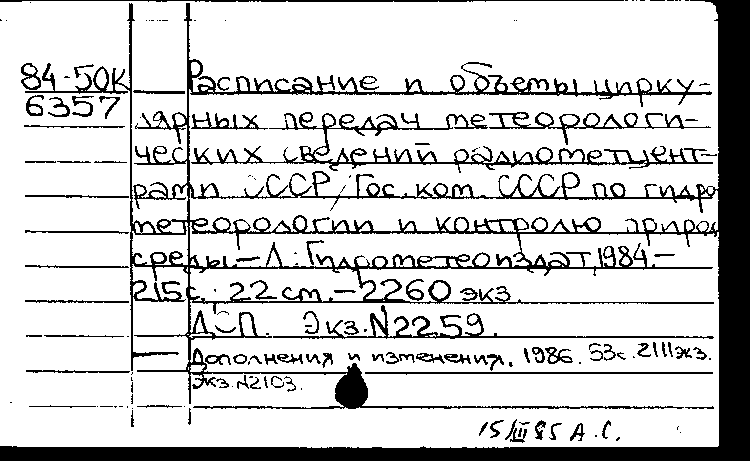 84-50К
6357
Расписание и объемы цирку-
лярных передач метеорологи-
ческих сведений радиометцент-
рами СССР / Гос. ком. СССР по гидро
метеорологии и контролю природ
среды. – Л.: Гидрометеоиздат, 1984. –
215 с.; 22 см. – 2260 экз.
ДСП. Экз. N2259.
— Дополнения и изменения. 1986. 53 с. 2111 экз.
Экз. N2103.
15/III 85 А.С.